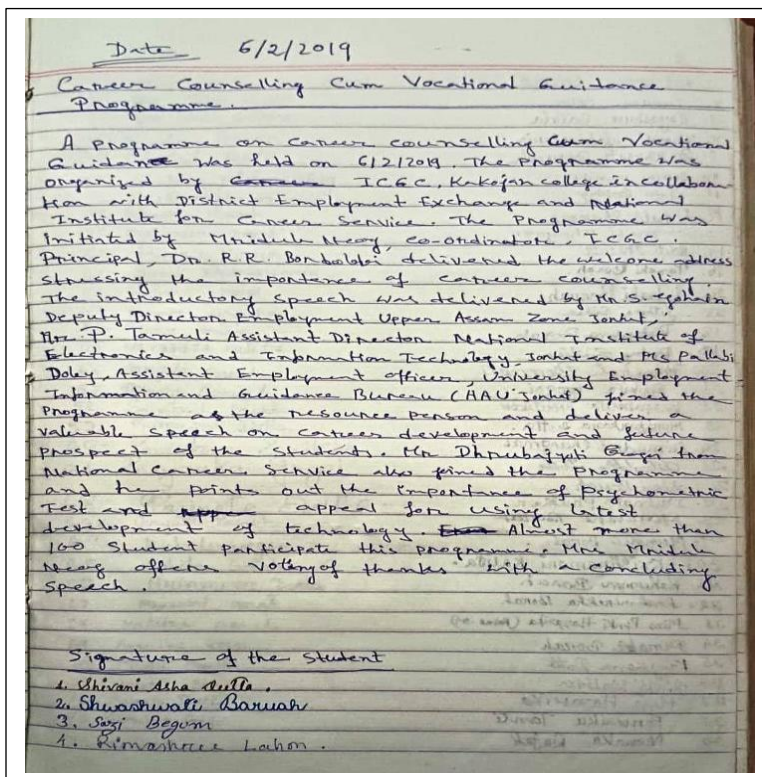 Date 6/2/2019
Career Counselling Cum Vocational Guidance
Programme.
A programme on career counselling cum Vocational
Guidance was held on 6/2/2019. The programme was
organized by ICGC, Kakojan college in collabora-
tion with District Employment Exchange and National
Institute for Career Service. The Programme was
initiated by Mridula Neog, co-ordinator, ICGC.
Principal, Dr. R.R. Borboloi delivered the welcome address
stressing the importance of career counselling.
The introductory speech was delivered by Mr S. gohain
Deputy Director Employment Upper Assam Zone Jorhat,
P. Tamuli Assistant Director National Institute of
Electronics and Information Technology Jorhat and Ms Pallabi
Doley, Assistant Employment officer, University Employment
Information and Guidance Bureau (AAU Jorhat) joined the
programme as the resource person and deliver a
valuable speech on career development and future
prospect of the students. Mr Dhrubajyoti Gogoi from
National Career Service also joined the programme
and he points out the importance of Psychometric
Test and appeal for using latest
development of technology. Almost more than
100 Student participate this programme. Mrs Mridula
Neog offers Voting of thanks with a concluding
speech.
Signature of the Student
1. Shivani Asha
2. Shwashwati Baruah
3. Begum
4. Rimashree Lahon.